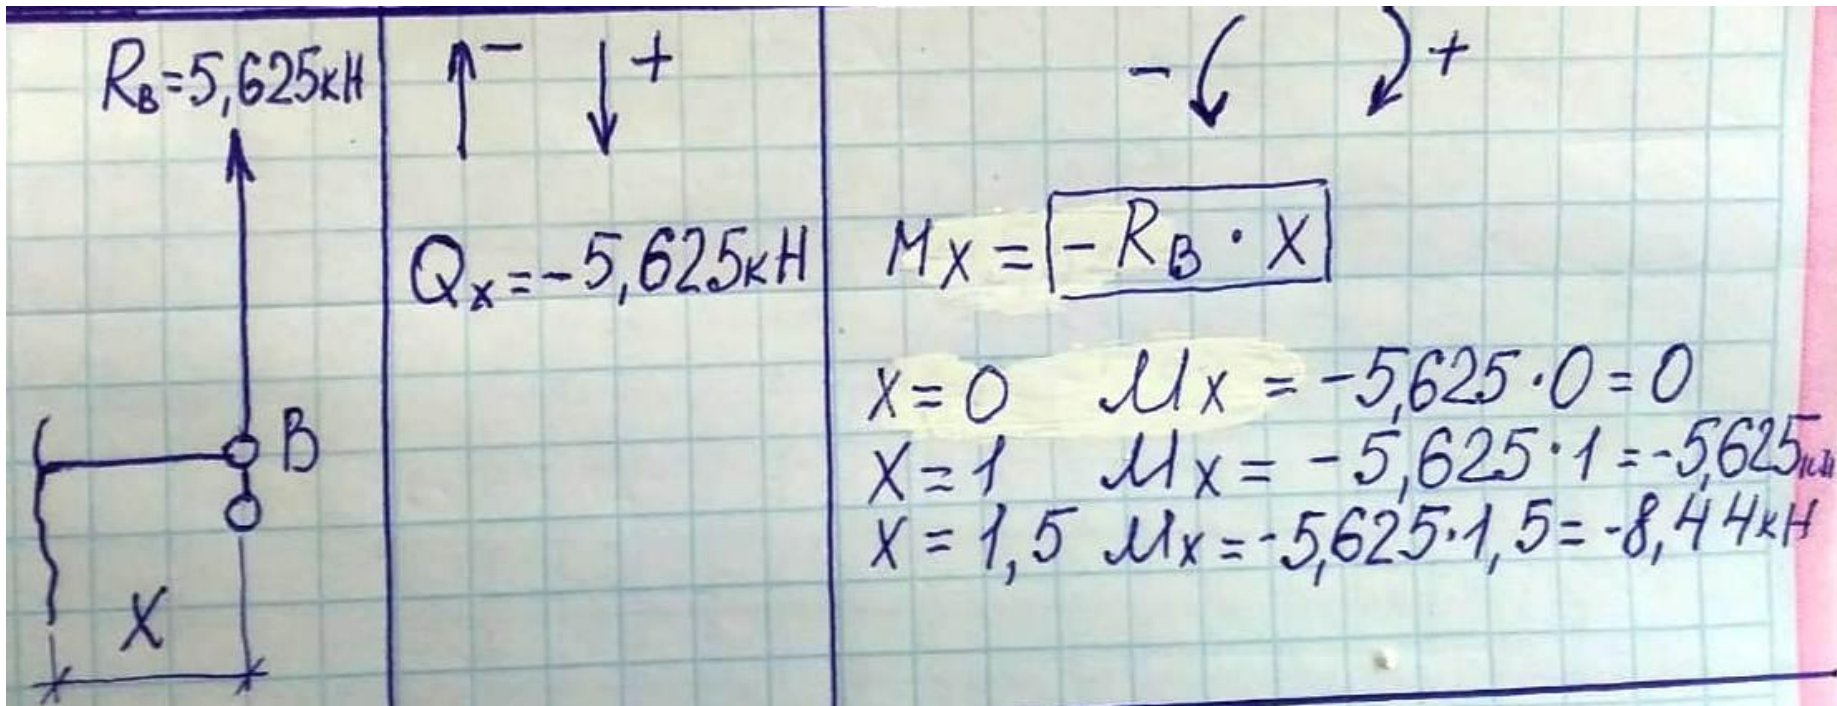 Rв=5,625кН
В
X
- +
Qx=-5,625кН
- +
Mx = -Rв · X
X=0 Mx = -5,625·0=0
X=1 Mx = -5,625·1=-5,625
X=1,5 Mx=-5,625·1,5=-8,44кН